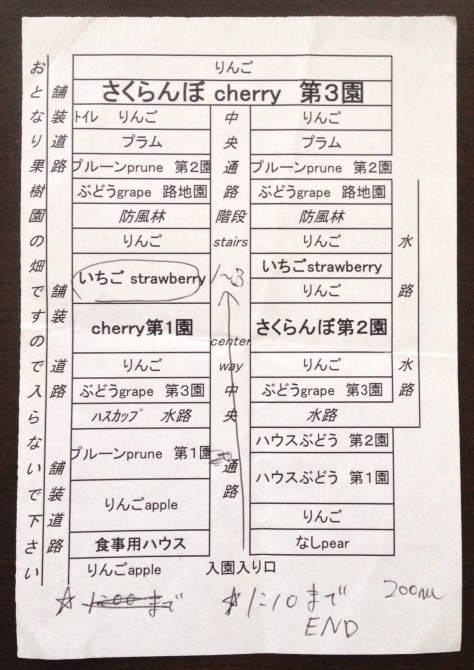 りんご
さくらんぼ cherry 第3園
ﾄｲﾚ りんご
りんご
プラム
プラム
プルーンprune 第2園
プルーンprune 第2園
ぶどうgrape 路地園
ぶどうgrape 路地園
防風林
階段
防風林
りんご
stairs
りんご
いちご strawberry
1〜3
いちごstrawberry
りんご
cherry第1園
さくらんぼ第2園
center
りんご
way
りんご
ぶどうgrape 第3園
ぶどうgrape 第3園
ﾊｽｶｯﾌﾟ 水路
水路
プルーンprune 第1園
ハウスぶどう 第2園
ハウスぶどう 第1園
りんごapple
りんご
食事用ハウス
なしpear
りんごapple
入園入り口
おとなり果樹園の畑ですので入らないで下さい
舗装道路
舗装道路
舗装道路
中央通路
中央通路
水路
水路
☆ 1:00まで
☆ 1:10まで
END